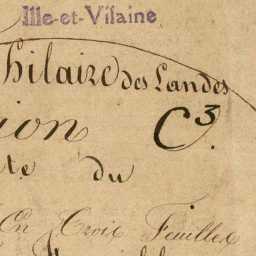 Ille-et-Vilaine
hilaire des Landes
ion C³.
te du
En Croix Feuilles